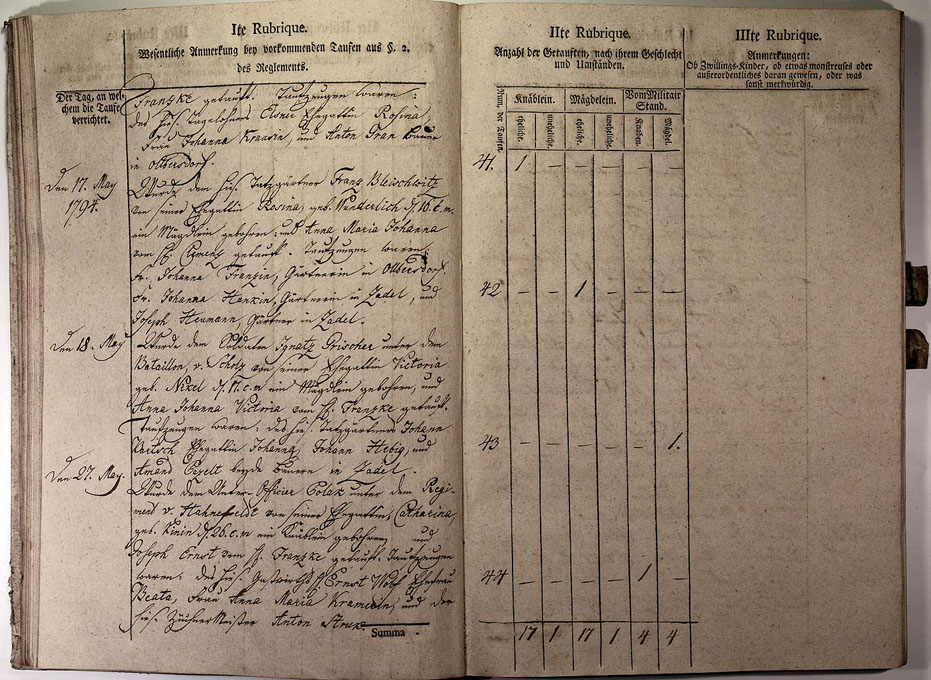 Ite Rubrique.
Wesentliche Anmerkung bey vorkommenden Taufen aus §. 2.
des Reglements.
Der Tag, an wel-
chem die Taufe
verrichtet.
Franzke getauft. Taufzeugen waren:
des hies. Tagelöhners Ehegattin Rosina,
Frau Johanna und Anton Bauer
in Olbersdorf.
Den 17. May
1794.
Wurde dem hies. Franz Bleischwitz
von seiner Ehegattin Rosina, geb. Wunderlich d. 16. c. m.
ein Mägdlein gebohren, und Anna Maria Johanna
vom getauft. Taufzeugen waren:
Fr. Johanna Franzin, Gärtnerin in Olbersdorf.
Fr. Johanna Henkin, Gärtnerin in Zadel, und
Joseph Heumann, Gärtner in Zadel.
Den 18. May
Wurde dem Soldaten Ignatz Grischer unter dem
Bataillon, v. Scholz von seiner Ehegattin Victoria
geb. Nixel d. 17. c. m ein Mägdlein gebohren, und
Anna Johanna Victoria vom H. Franzke getauft.
Taufzeugen waren: des hies. Johann
Ehegattin Johanna, Johann Hebig, und
Amand beyde Bauern in Zadel.
Den 27. May.
Wurde dem Unter-Officier Polak unter dem Regi-
ment v. von seiner Ehegattin, Catharina,
geb. d. 26. c. m ein Knäblein gebohren, und
Joseph Ernst vom H. Franzke getauft. Taufzeugen
waren: des hies. Gastwirths H. Ernst Wolf Ehefrau
Beata, Frau Anna Maria und der
hies. Anton
Summa
IIte Rubrique.
Anzahl der Getauften, nach ihrem Geschlecht
und Umständen.
Num. der Taufen.
Knäblein.
Mägdelein.
Vom Militair
Stand.
eheliche.
uneheliche.
eheliche.
uneheliche.
Knaben.
Mägdel.
41. 1 – – – – –
42 – – 1 – – –
43 – – – – – 1.
44 – – – – 1 –
17 1 17 1 4 4
IIIte Rubrique.
Anmerkungen:
Ob Zwillings-Kinder, ob etwas monstreuses oder
außerordentliches daran gewesen, oder was
sonst merkwürdig.